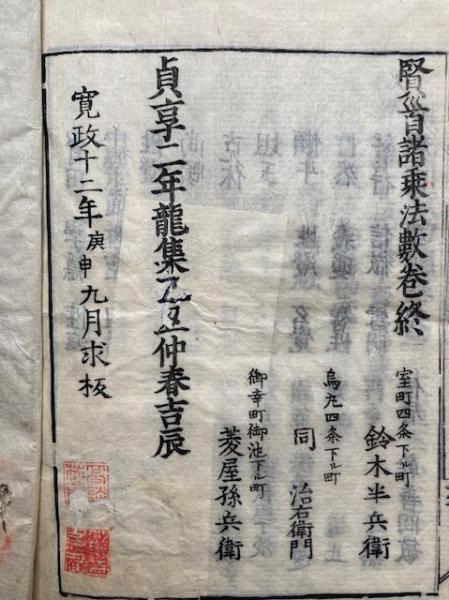 賢首諸乘法數卷終
室町四条下ル町
鈴木半兵衛
烏丸四条下ル町
同 治右衛門
御幸町御池下ル町
菱屋孫兵衛
貞享二年龍集乙丑仲春吉辰
寛政十二年庚申九月求板